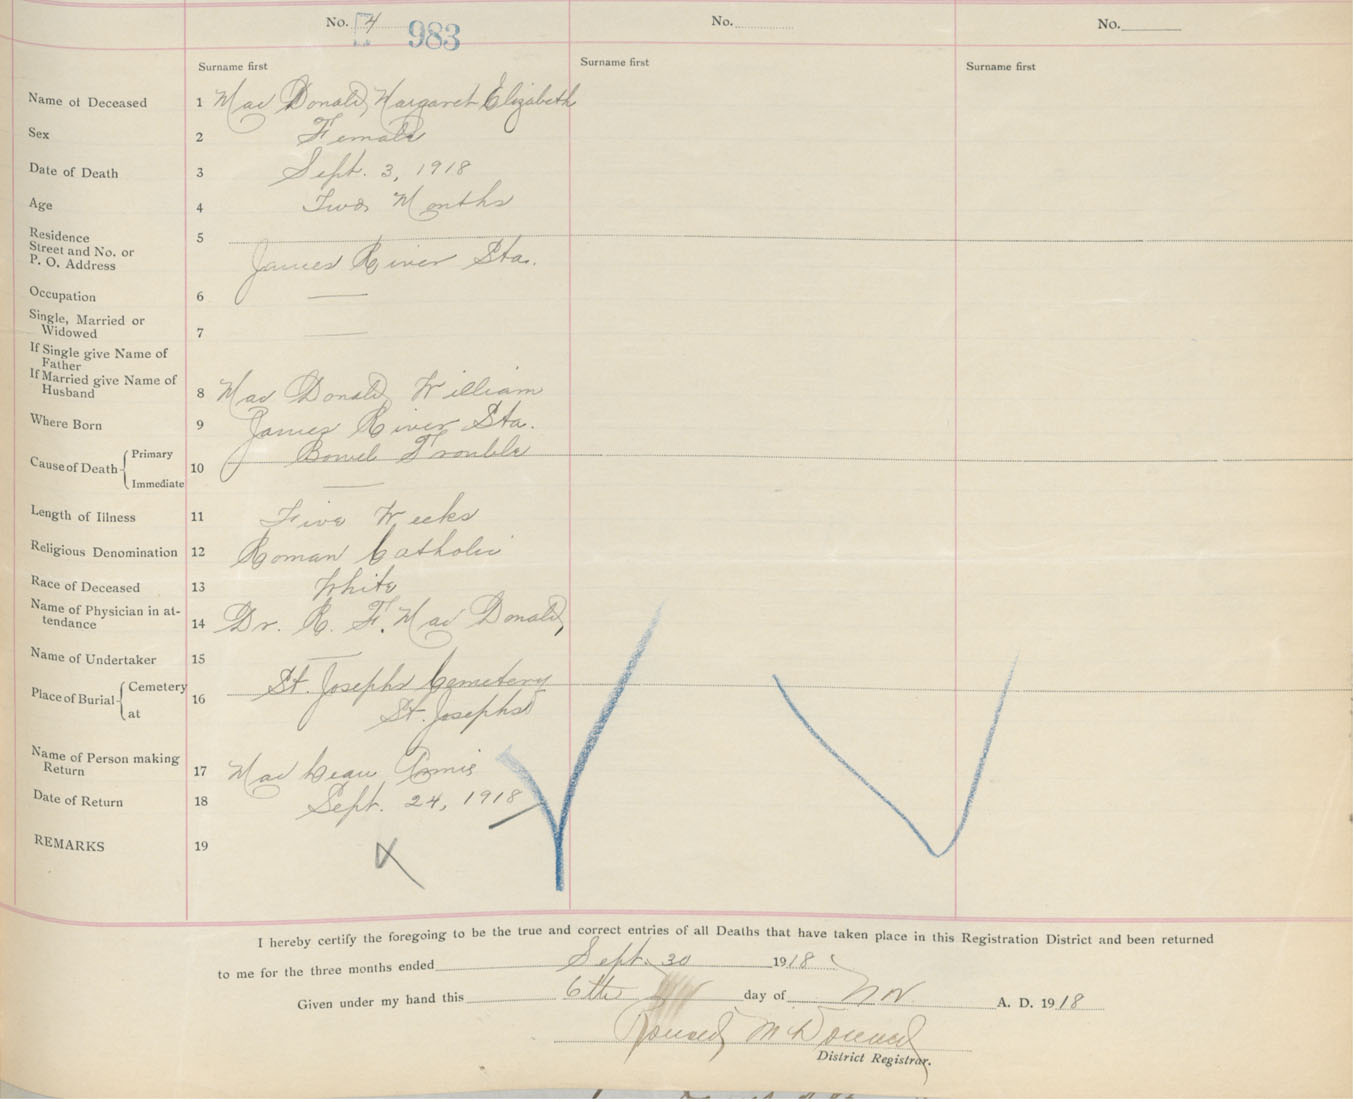 No. 4 983 No. No.
Surname first Surname first Surname first
Name of Deceased 1 Mac Donald, Margaret Elizabeth
Sex 2 Female
Date of Death 3 Sept. 3, 1918
Age 4 Two Months
Residence 5
Street and No. or
P. O. Address James River Sta.
Occupation 6 —
Single, Married or
Widowed 7 —
If Single give Name of
Father
If Married give Name of
Husband 8 Mac Donald William
Where Born 9 James River Sta.
Cause of Death Primary 10 Bowel Trouble
Immediate —
Length of Illness 11 Five Weeks
Religious Denomination 12 Roman Catholic
Race of Deceased 13 White
Name of Physician in at-
tendance 14 Dr. R. F. Mac Donald,
Name of Undertaker 15 —
Place of Burial Cemetery 16 St. Josephs Cemetery
at St. Josephs
Name of Person making
Return 17 Mac Lean Annie
Date of Return 18 Sept. 24, 1918
REMARKS 19
I hereby certify the foregoing to be the true and correct entries of all Deaths that have taken place in this Registration District and been returned
to me for the three months ended Sept. 30 1918
Given under my hand this 6th day of Nov. A. D. 1918
District Registrar.